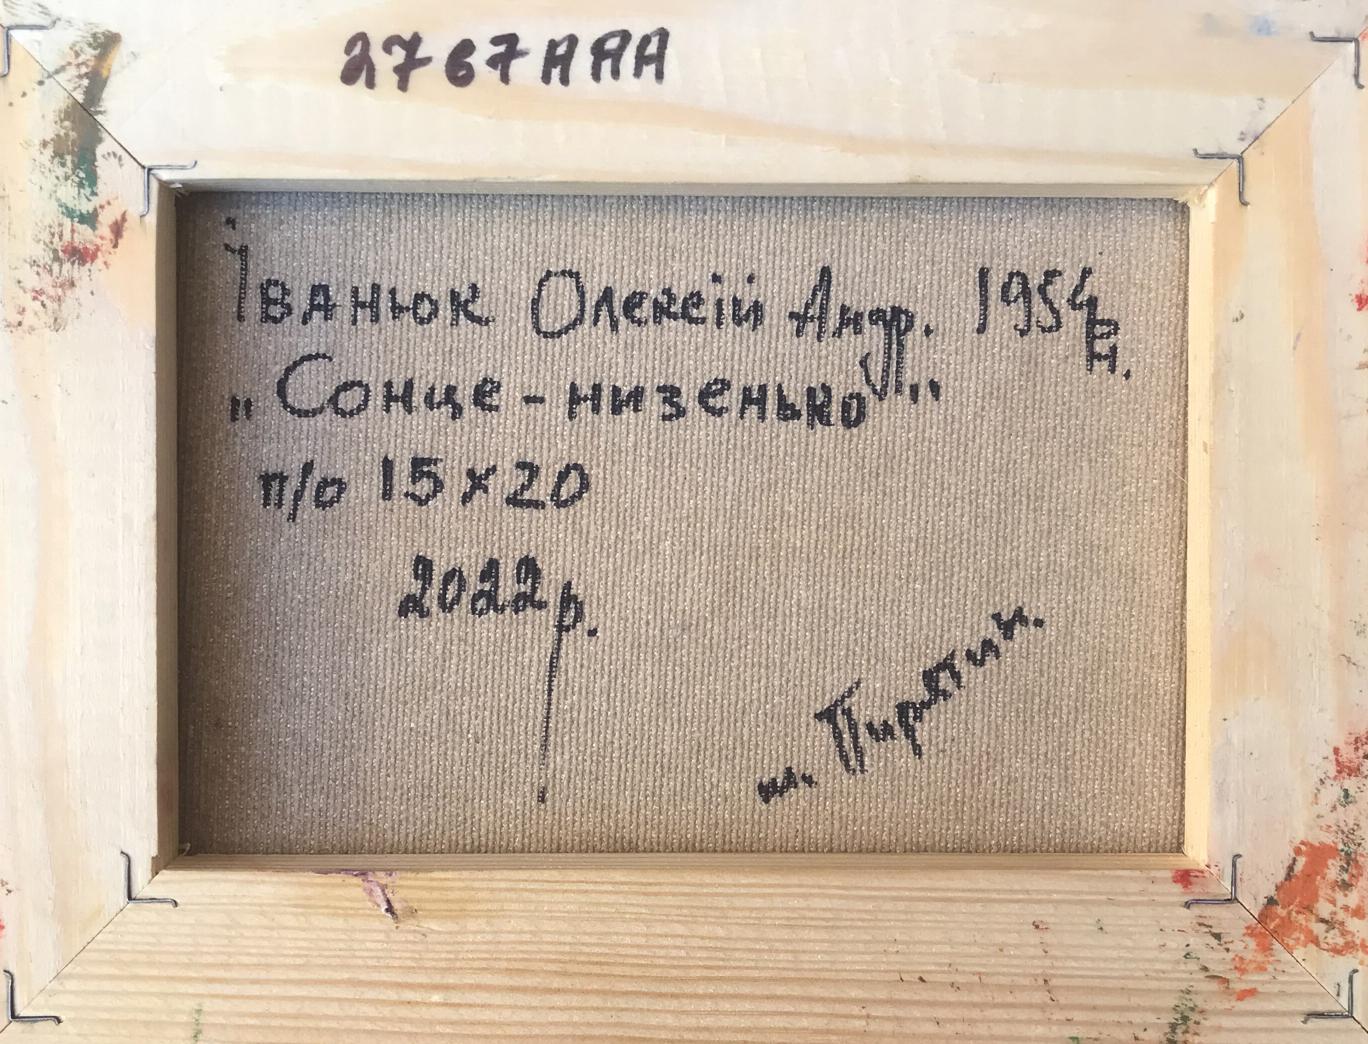 2767AAA
Іванюк Олексій Андр. 1954 р.н.
„Сонце-низенько"
п/о 15х20
2022 р.
м. Пирятин.